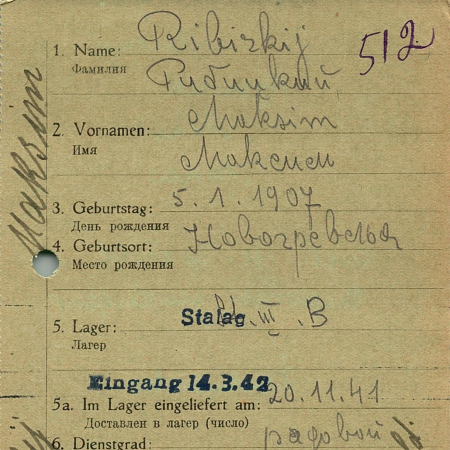 512
1. Name: Ribizkij
Фамилия Рибицкий
2. Vornamen: Maksim
Имя Максим
Maksim
3. Geburtstag: 5.1.1907
День рождения
4. Geburtsort:
Место рождения
5. Lager: Stalag III.B
Лагер
Eingang 14.3.42
5a. Im Lager eingeliefert am: 20.11.41
Доставлен в лагер (число)
6. Dienstgrad: рядовой